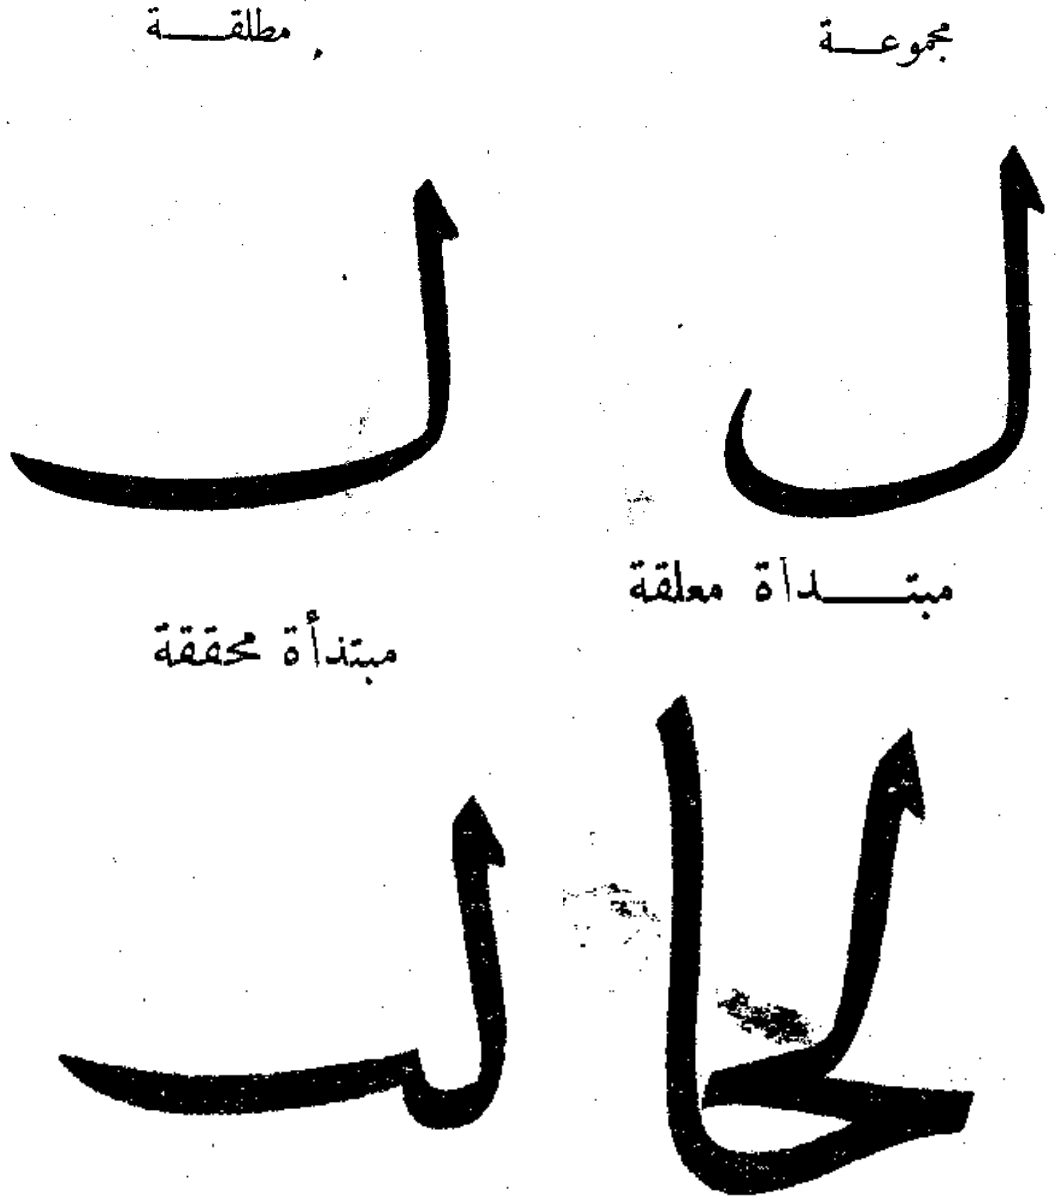 مجموعة
مطلقة
ل
ل
مبتدأة معلقة
مبتدأة محققة
لحا
لب